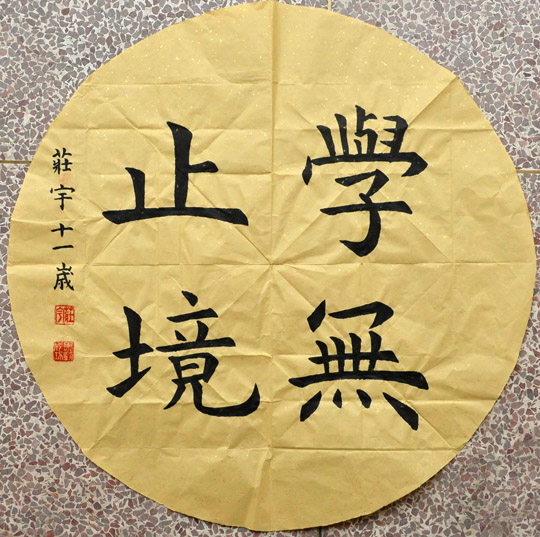 學無
止境
莊宇十一歲